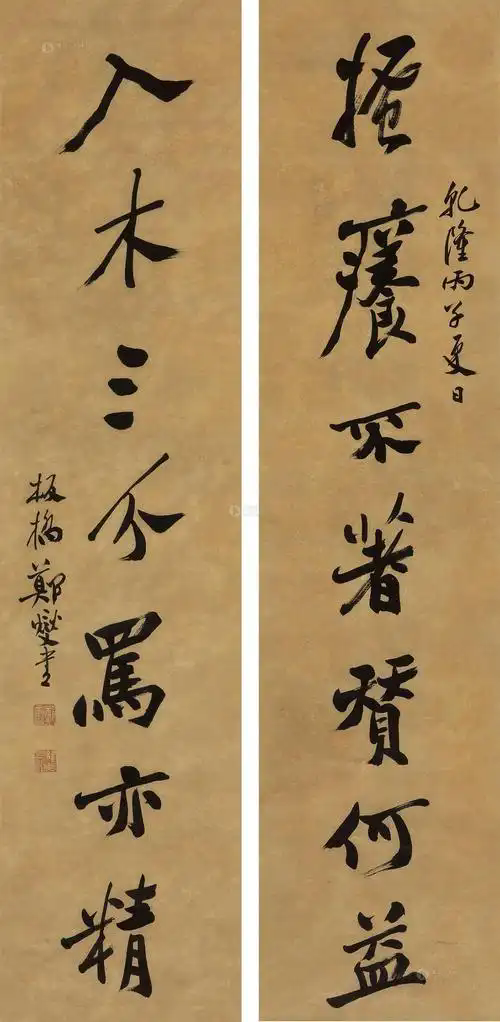 乾隆丙子夏日
搔癢不著贊何益
入木三分罵亦精
板橋鄭燮書